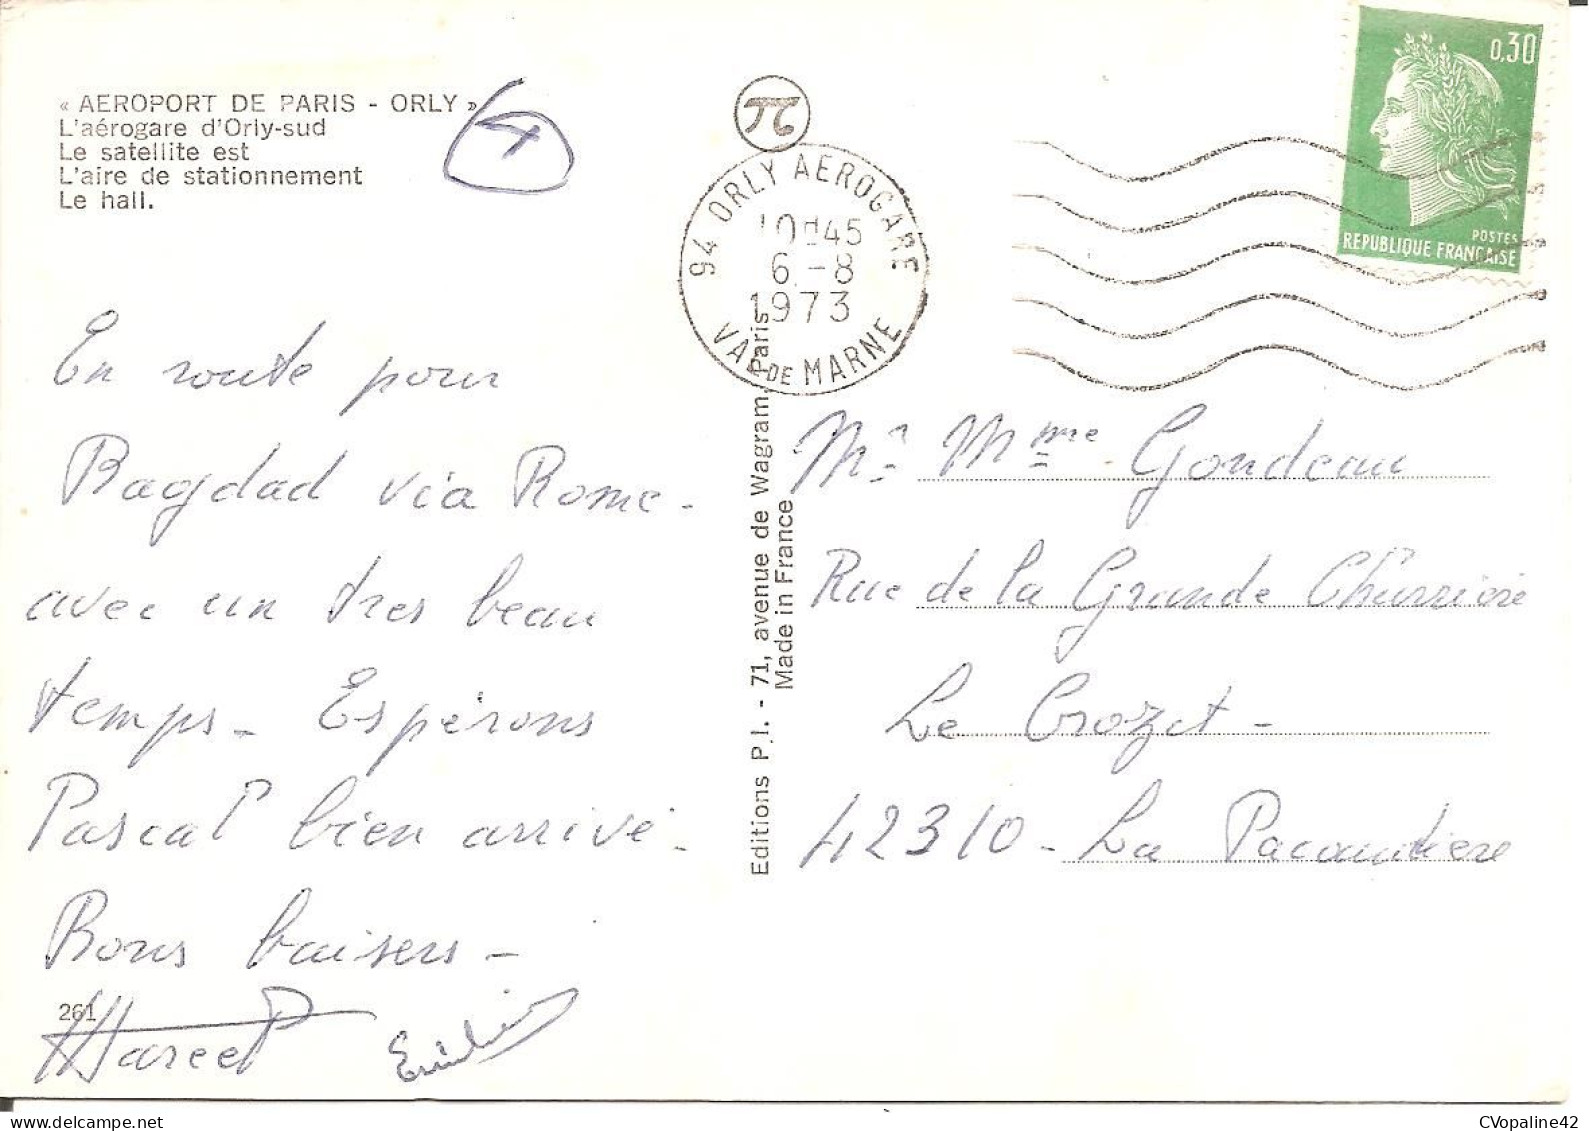 « AEROPORT DE PARIS - ORLY »
L'aérogare d'Orly-sud
Le satellite est
L'aire de stationnement
Le hall.
94 ORLY AEROGARE
10H45
6 - 8
1973
VAL DE MARNE
0,30
POSTES
REPUBLIQUE FRANÇAISE
En route pour
Bagdad via Rome -
avec un tres beau
temps - Espérons
Pascal bien arrivé -
Bons baisers -
Marcel Emilie
261
Editions P.I. - 71, avenue de Wagram, Paris
Made in France
Mr Mme Gondeau
Rue de la Grande Charrière
Le Crozet -
42310 - La Pacaudiere
CVopaline42